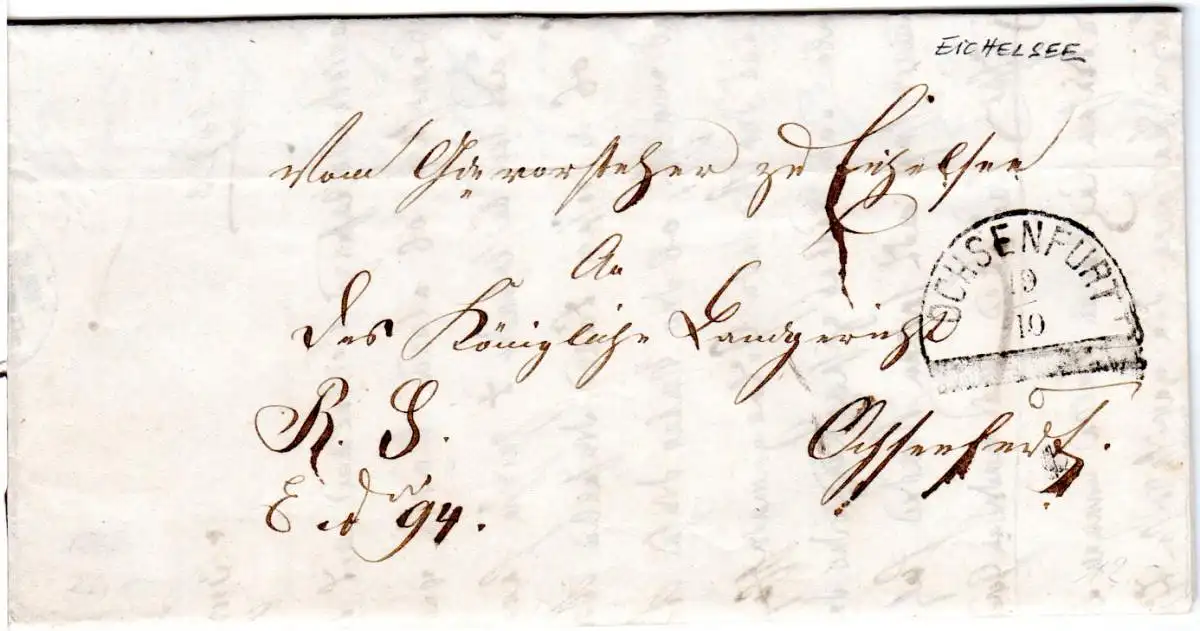 EICHELSEE
Vom Gdevorsteher zu Eichelsee
An
das Königliche Landgericht
OCHSENFURT
19
10
R. S.
Ochsenfurt.
94.